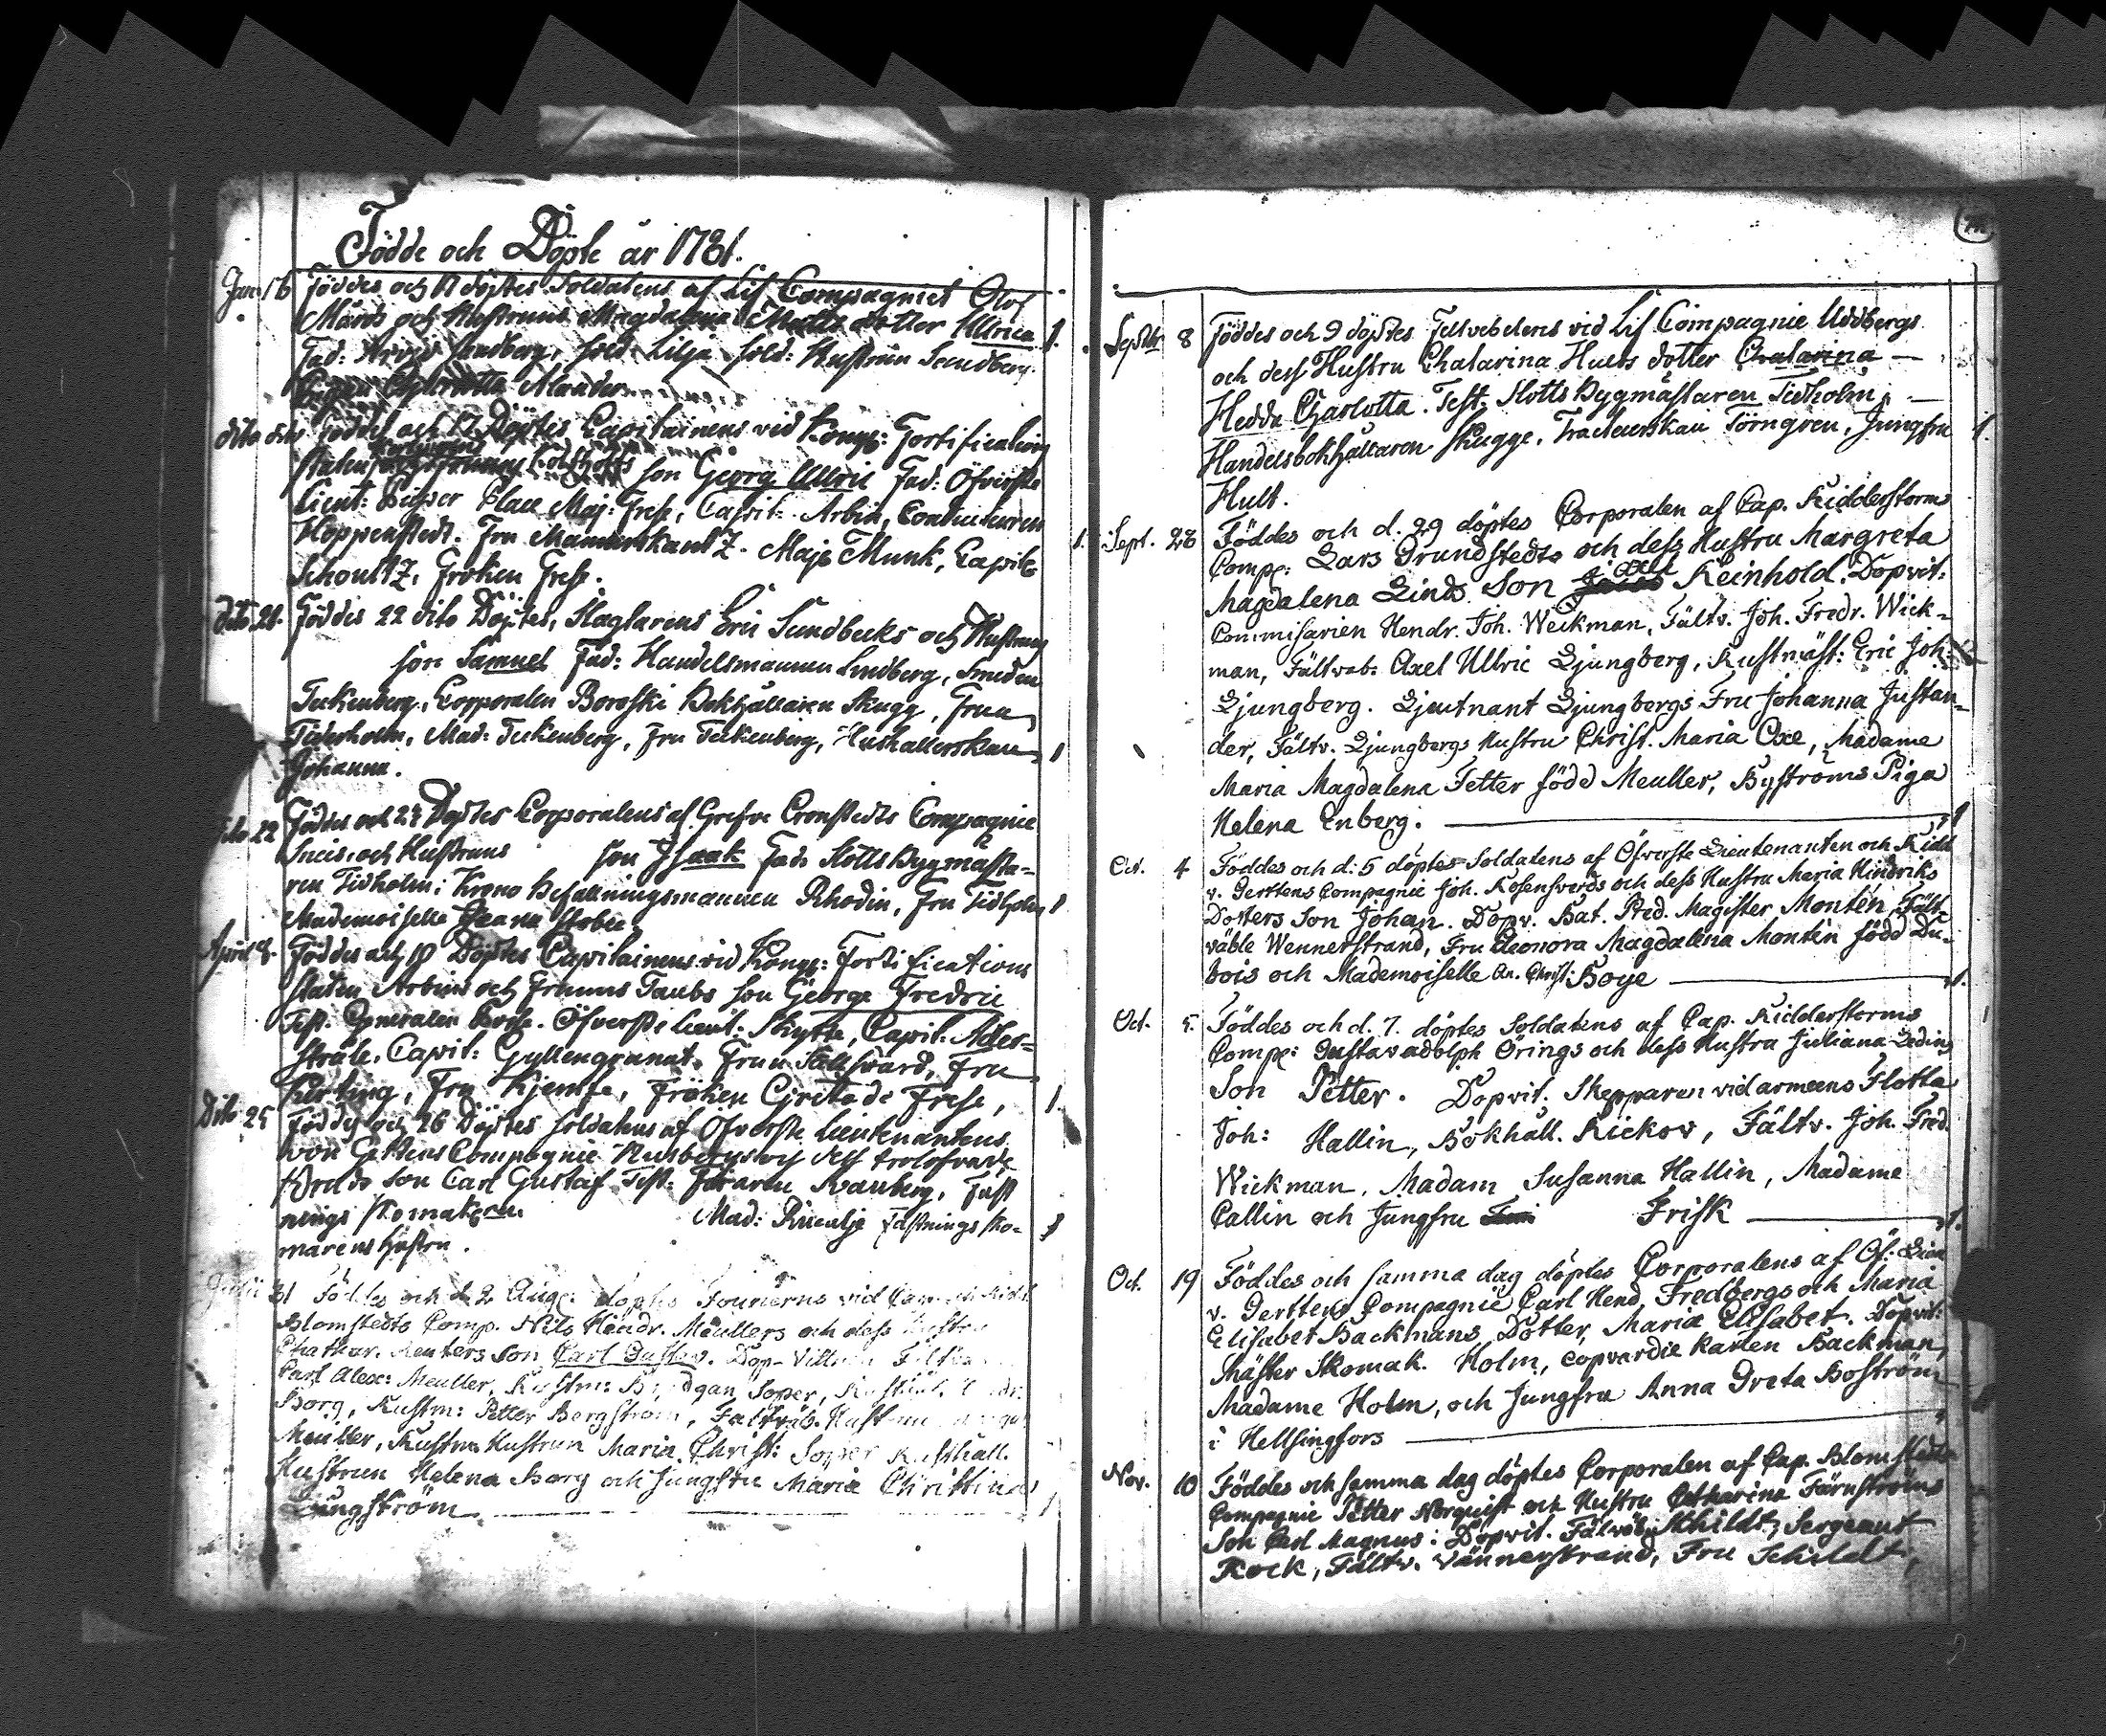 Födde och Döpte år 1781.
Jan. 16 Föddes och 17 döptes Soldatens af Lif Compagniet Olof
och Hustruns Magdalena Matts dotter Ullrica 1.
Fad: Sandberg, sold. Lilja sold: Hustrun Sandberg
Charlotta Alander
dito dito Föddes och 17 Döptes Capitainens vid Kongs: Fortifications
staten son Georg Ullric Fad: Öfverste
Lieut: Place Maj: Frese, Capit: Arbin, Conducteuren
Hoppenstedt. Fru Maj: Munk, Capit: 1.
Schoultz, Fröken Frese.
dito 21. Föddes 22 dito Döptes, Slagtarens Eric Sundbecks och Hustruns
son Samuel Fad: Handelsmannen Lindberg, Smeden
Teckenberg, Corporalen Boroski Bokhållaren Skugg, Frun
Tidholm, Mad: Teckenberg, Fru Teckenberg, Hushållerskan 1
Johanna.
dito 22 Föddes och 24 Döptes Corporalens af Grefve Cronstedts Compagnie
och Hustruns son Isaak Fad: Slotts Byggmästa-
ren Tidholm; Krono Befallningsmannen Rhodin, Fru Tidholm 1
Mademoiselle
April 8. Föddes och Döptes Capitainens vid Kongs: Fortifications
staten Arbins och Fruns Taube son George Fredric
Test. Generalen Öfverste Lieut: Skytte, Capit: Adler-
stråle, Capit: Gyllengranat, Frun Fru
Fru Kjempe, Fröken Greta de Frese, 1.
Dito 25 Föddes och 26 Döptes soldatens af Öfverste Lieutenantens
von Gerttens Compagnie och dess
son Carl Gustaf Test: Svanberg, Fäst
nings Skomakaren Mad: Fästnings sko- 1
makarens hustru.
Julii 31 Föddes och d. 2 Aug: döptes Fourierns vid
Blomstedts Comp. Nils Hendr. Meullers och dess Hustru
Chathar. Reuters Son Carl Gustav. Dop-Vittnen
Carl Alex: Meuller, Soper,
Borg, Rustm: Petter Bergström, Fältväb. Hustrun
Meuller, Rustm. Hustrun Maria Christ: Soper Rusthåll.
Hustrun Helena Borg och Jungfru Maria Christina
Ljungström 1
Septbr 8 Föddes och 9 döptes Feltvebelens vid Lif Compagnie Uddbergs
och dess Hustru Chatarina Hults dotter Chatarina
Hedda Charlotta. Test: Slotts Bygmästaren Tidholm,
Handelsbokhållaren Skugge, Tracteurskan Törngren, Jungfru 1.
Hult.
Sept. 28 Föddes och d. 29 döptes Corporalen af Cap. Ridderstorms
Comp: Lars Grundstedts och dess Hustru Margreta
Magdalena Linds Son Axel Reinhold. Dopvit:
Commisarien Hendr. Joh. Weckman, Fältv. Joh. Fredr. Wick-
man, Fältvab: Axel Ullric Ljungberg, Rustmäst: Eric Joh:
Ljungberg. Ljeutnant Ljungbergs Fru Johanna Justan-
der, Fältv. Ljungbergs Hustru Christ. Maria Oxe, Madame
Maria Magdalena Tetter född Meuller, Byströms Piga
Helena Enberg. 1
Oct. 4 Föddes och d: 5 döptes Soldatens af Öfverste Lieutenanten och Ridd
v. Gerttens Compagnie Joh. Rosensverds och dess Hustru Maria Hindriks
Dotters Son Johan. Dopv. Bat. Pred. Magister Montén, Fält-
väble Wennerstrand, Fru Eleonora Magdalena Montén född Du-
bois och Mademoiselle An. Christ: Boye 1.
Oct. 5. Föddes och d. 7. döptes Soldatens af Cap. Ridderstorms
Comp: Gustavadolph Örings och dess Hustru Juliana Ledins
Son Petter. Dopvit. Skepparen vid armeens Flotta
Joh: Hallin, Bokhåll. Rickov, Fältv. Joh. Fred.
Wickman, Madam Susanna Hallin, Madame
Callin och Jungfru Frisk 1.
Oct. 19 Föddes och samma dag döptes Corporalens af Öf: Lieu
v. Gerttens Compagnie Carl Hend. Fredbergs och Maria
Elisabet Backmans Dotter, Maria Elisabet. Dopvit:
Mäster Skomak. Holm, Copvardie Karlen Backman,
Madame Holm, och Jungfru Anna Greta Boström
i Hellsingfors
Nov. 10 Föddes och samma dag döptes Corporalen af Cap. Blomstedts
Compagnie Petter Norquist och Hustru Catharina Färnströms
Son Carl Magnus: Dopvit. Fältväb. Schildt, Sergeant
Rock, Fältv. Vännerstrand, Fru Schildt,